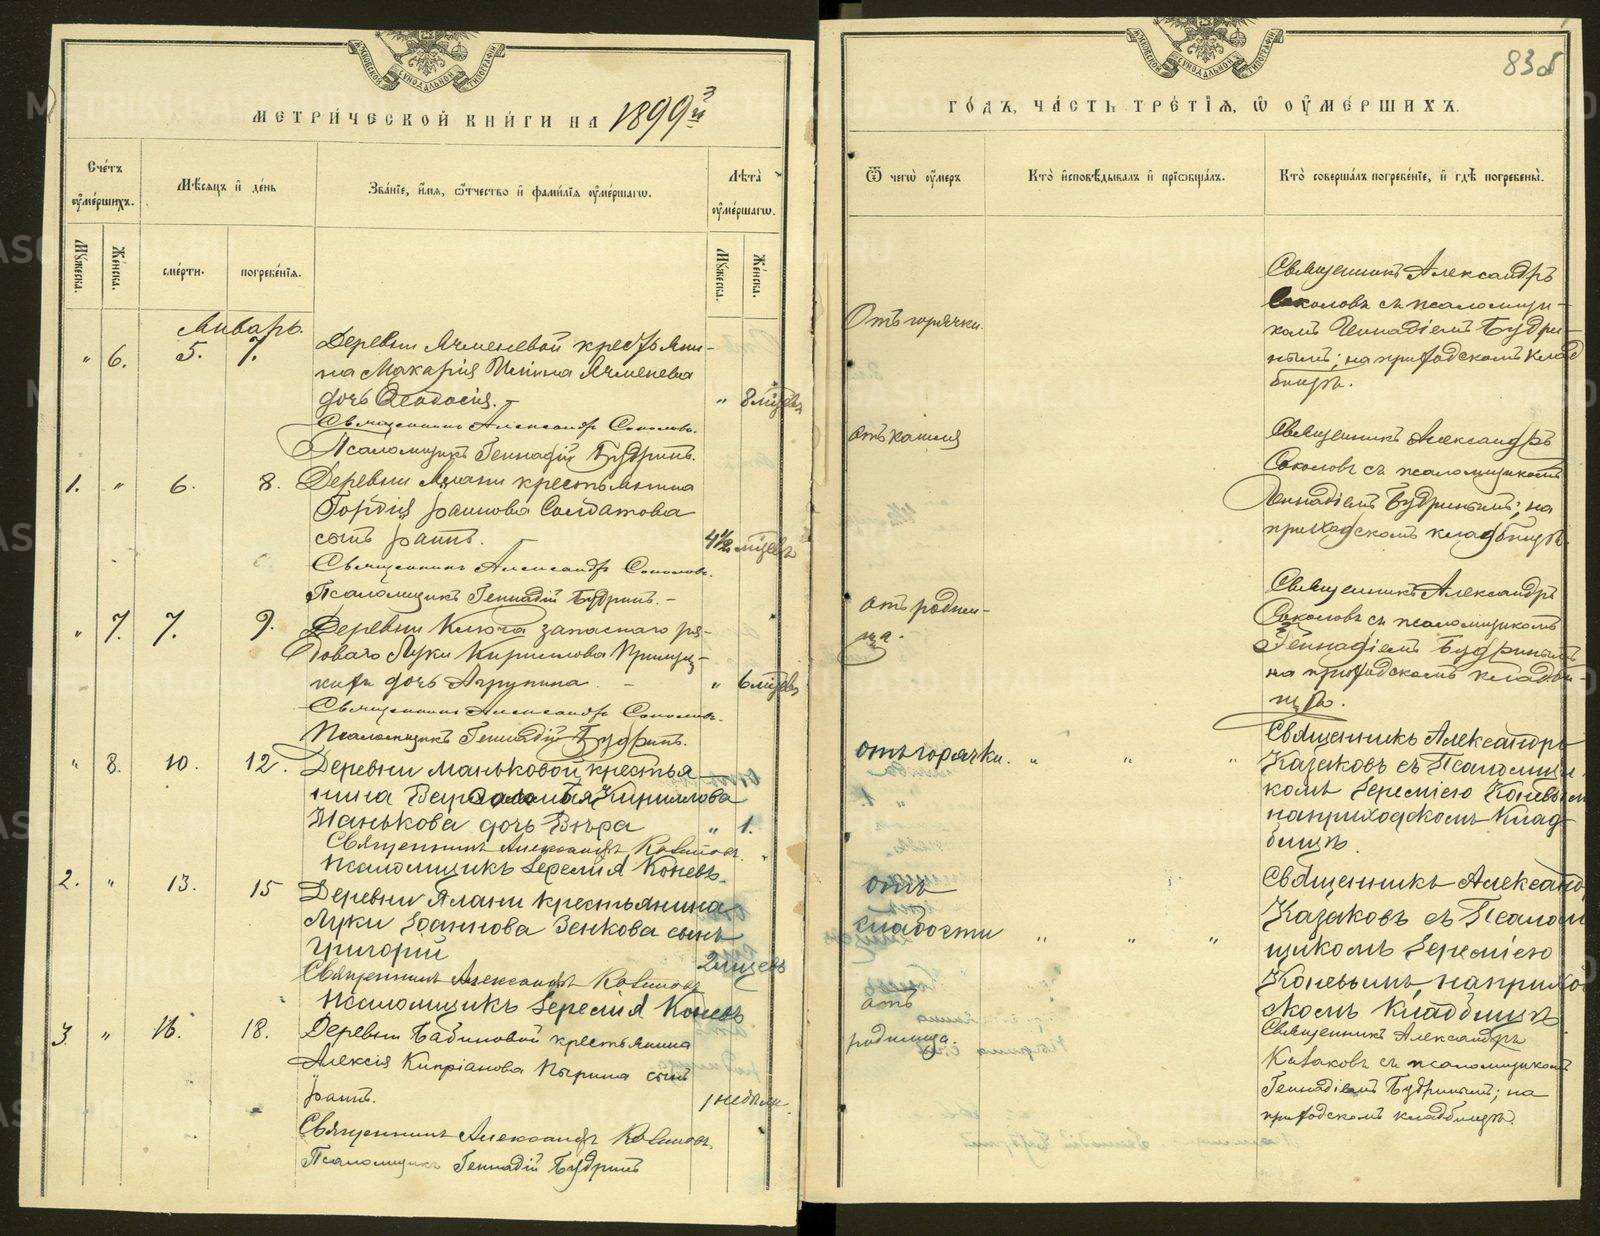 МЕТРИ́ЧЕСКОЙ КНИ́ГИ НА 1899й
Сче́тъ ᲂу҆ме́ршихъ.
Мѣсяцъ и҆ де́нь
Зва́нїе, и҆́мѧ, ѻ҆́тчество и҆ фамѝлїѧ ᲂу҆ме́ршагѡ.
Лѣта̀ ᲂу҆ме́ршагѡ.
Мꙋ́жеска.
Же́нска.
сме́рти.
погребе́нїѧ.
Мꙋ́жеска.
Же́нска.
Январь.
" 6. 5. 7. Деревни Ячменевой крестьяни-
на Макарія Ильина Ячменева
дочь Ѳеодосія. " 8 мѣцевъ
Священникъ Александръ Соколовъ.
Псаломщикъ Геннадій Будринъ.
1. " 6. 8. Деревни крестьянина
Гордія Іоаннова Солдатова
сынъ Іоаннъ. 4½ мѣцевъ
Священникъ Александръ Соколовъ.
Псаломщикъ Геннадій Будринъ.
" 7. 7. 9. Деревни Ключа запаснаго ря-
доваго Луки Кириллова
дочь Агрупина. " 6 мѣцевъ
Священникъ Александръ Соколовъ.
Псаломщикъ Геннадій Будринъ.
" 8. 10. 12. Деревни Маньковой крестья
нина Кириллова
Манькова дочь Вѣра " 1.
Священникъ Александръ Казаковъ.
Псаломщикъ Іеремія Коневъ.
2. " 13. 15 Деревни крестьянина
Луки Іоаннова Зенкова сынъ
Григорій 2 мѣцевъ
Священникъ Александръ Казаковъ
Псаломщикъ Іеремія Коневъ
3. " 16. 18. Деревни Бабиновой крестьянина
Алексія Кипріанова Пырина сынъ
Іоаннъ. 1 недѣли.
Священникъ Александръ Казаковъ.
Псаломщикъ Геннадій Будринъ
83об
ГО́ДЪ, ЧА́СТЬ ТРЕ́ТЇѦ, Ѽ ОУ҆МЕ́РШИХЪ.
Ѿ чегѡ̀ ᲂу҆́меръ
Кто̀ и҆сповѣ́дывалъ и҆ прїѡбща́лъ.
Кто̀ соверша́лъ погребе́нїе, и҆ гдѣ̀ погребены̀.
Отъ горячки.
Священникъ Александръ
Соколовъ съ псаломщи-
комъ Геннадіемъ Будри-
нымъ; на приходскомъ клад
бищѣ.
отъ кашля
Священникъ Александръ
Соколовъ съ псаломщикомъ
Геннадіемъ Будринымъ; на
приходскомъ кладбищѣ.
отъ родим-
ца.
Священникъ Александръ
Соколовъ съ псаломщикомъ
Геннадіемъ Будринымъ
на приходскомъ кладби-
щѣ.
отъ горячки. " " "
Священникъ Александръ
Казаковъ съ Псаломщи-
комъ Іереміею Коневымъ
на приходскомъ Клад-
бищѣ.
отъ
слабости " " "
Священникъ Александ
Казаковъ съ Псалом
щикомъ Іереміею
Коневымъ на прихо
скомъ Кладбищѣ
отъ
родимца.
Священникъ Александръ
Казаковъ съ псаломщикомъ
Геннадіемъ Будринымъ; на
приходскомъ кладбищѣ.
METRIKI.GASO-URAL.RU